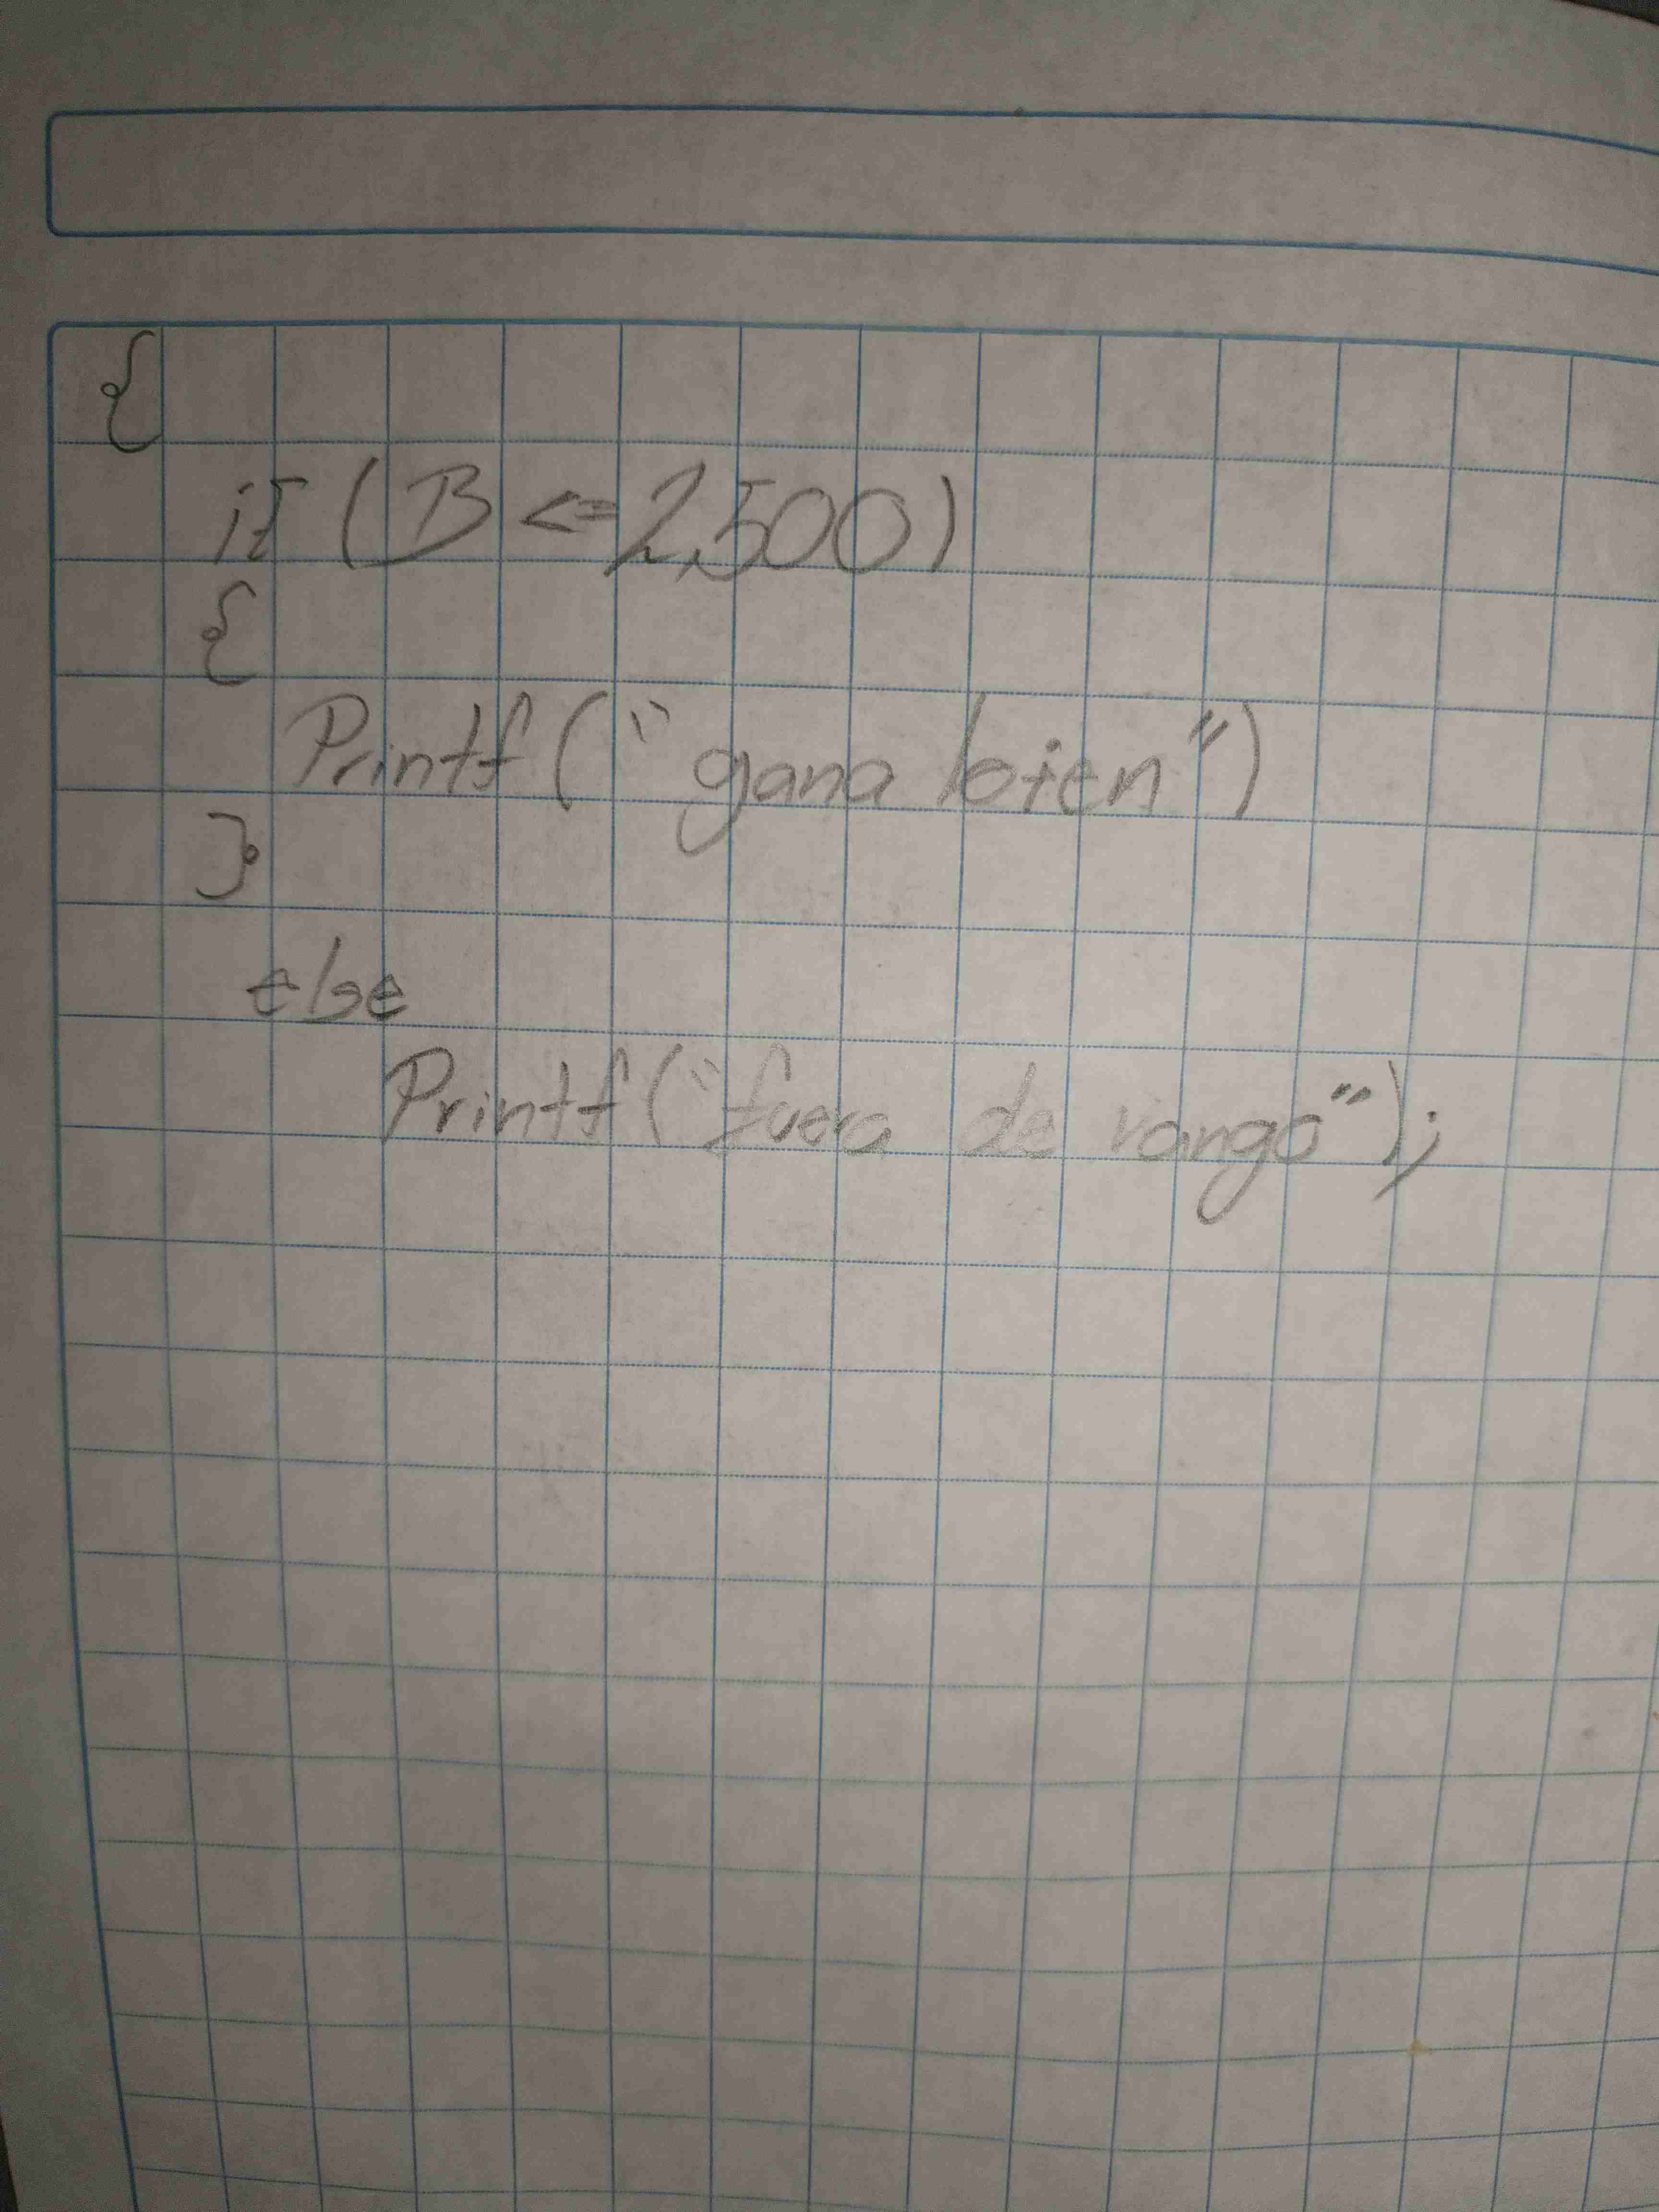 {
if (B <= 2,500)
{
Printf ("gana bien")
}
else
Printf ("fuera de rango");